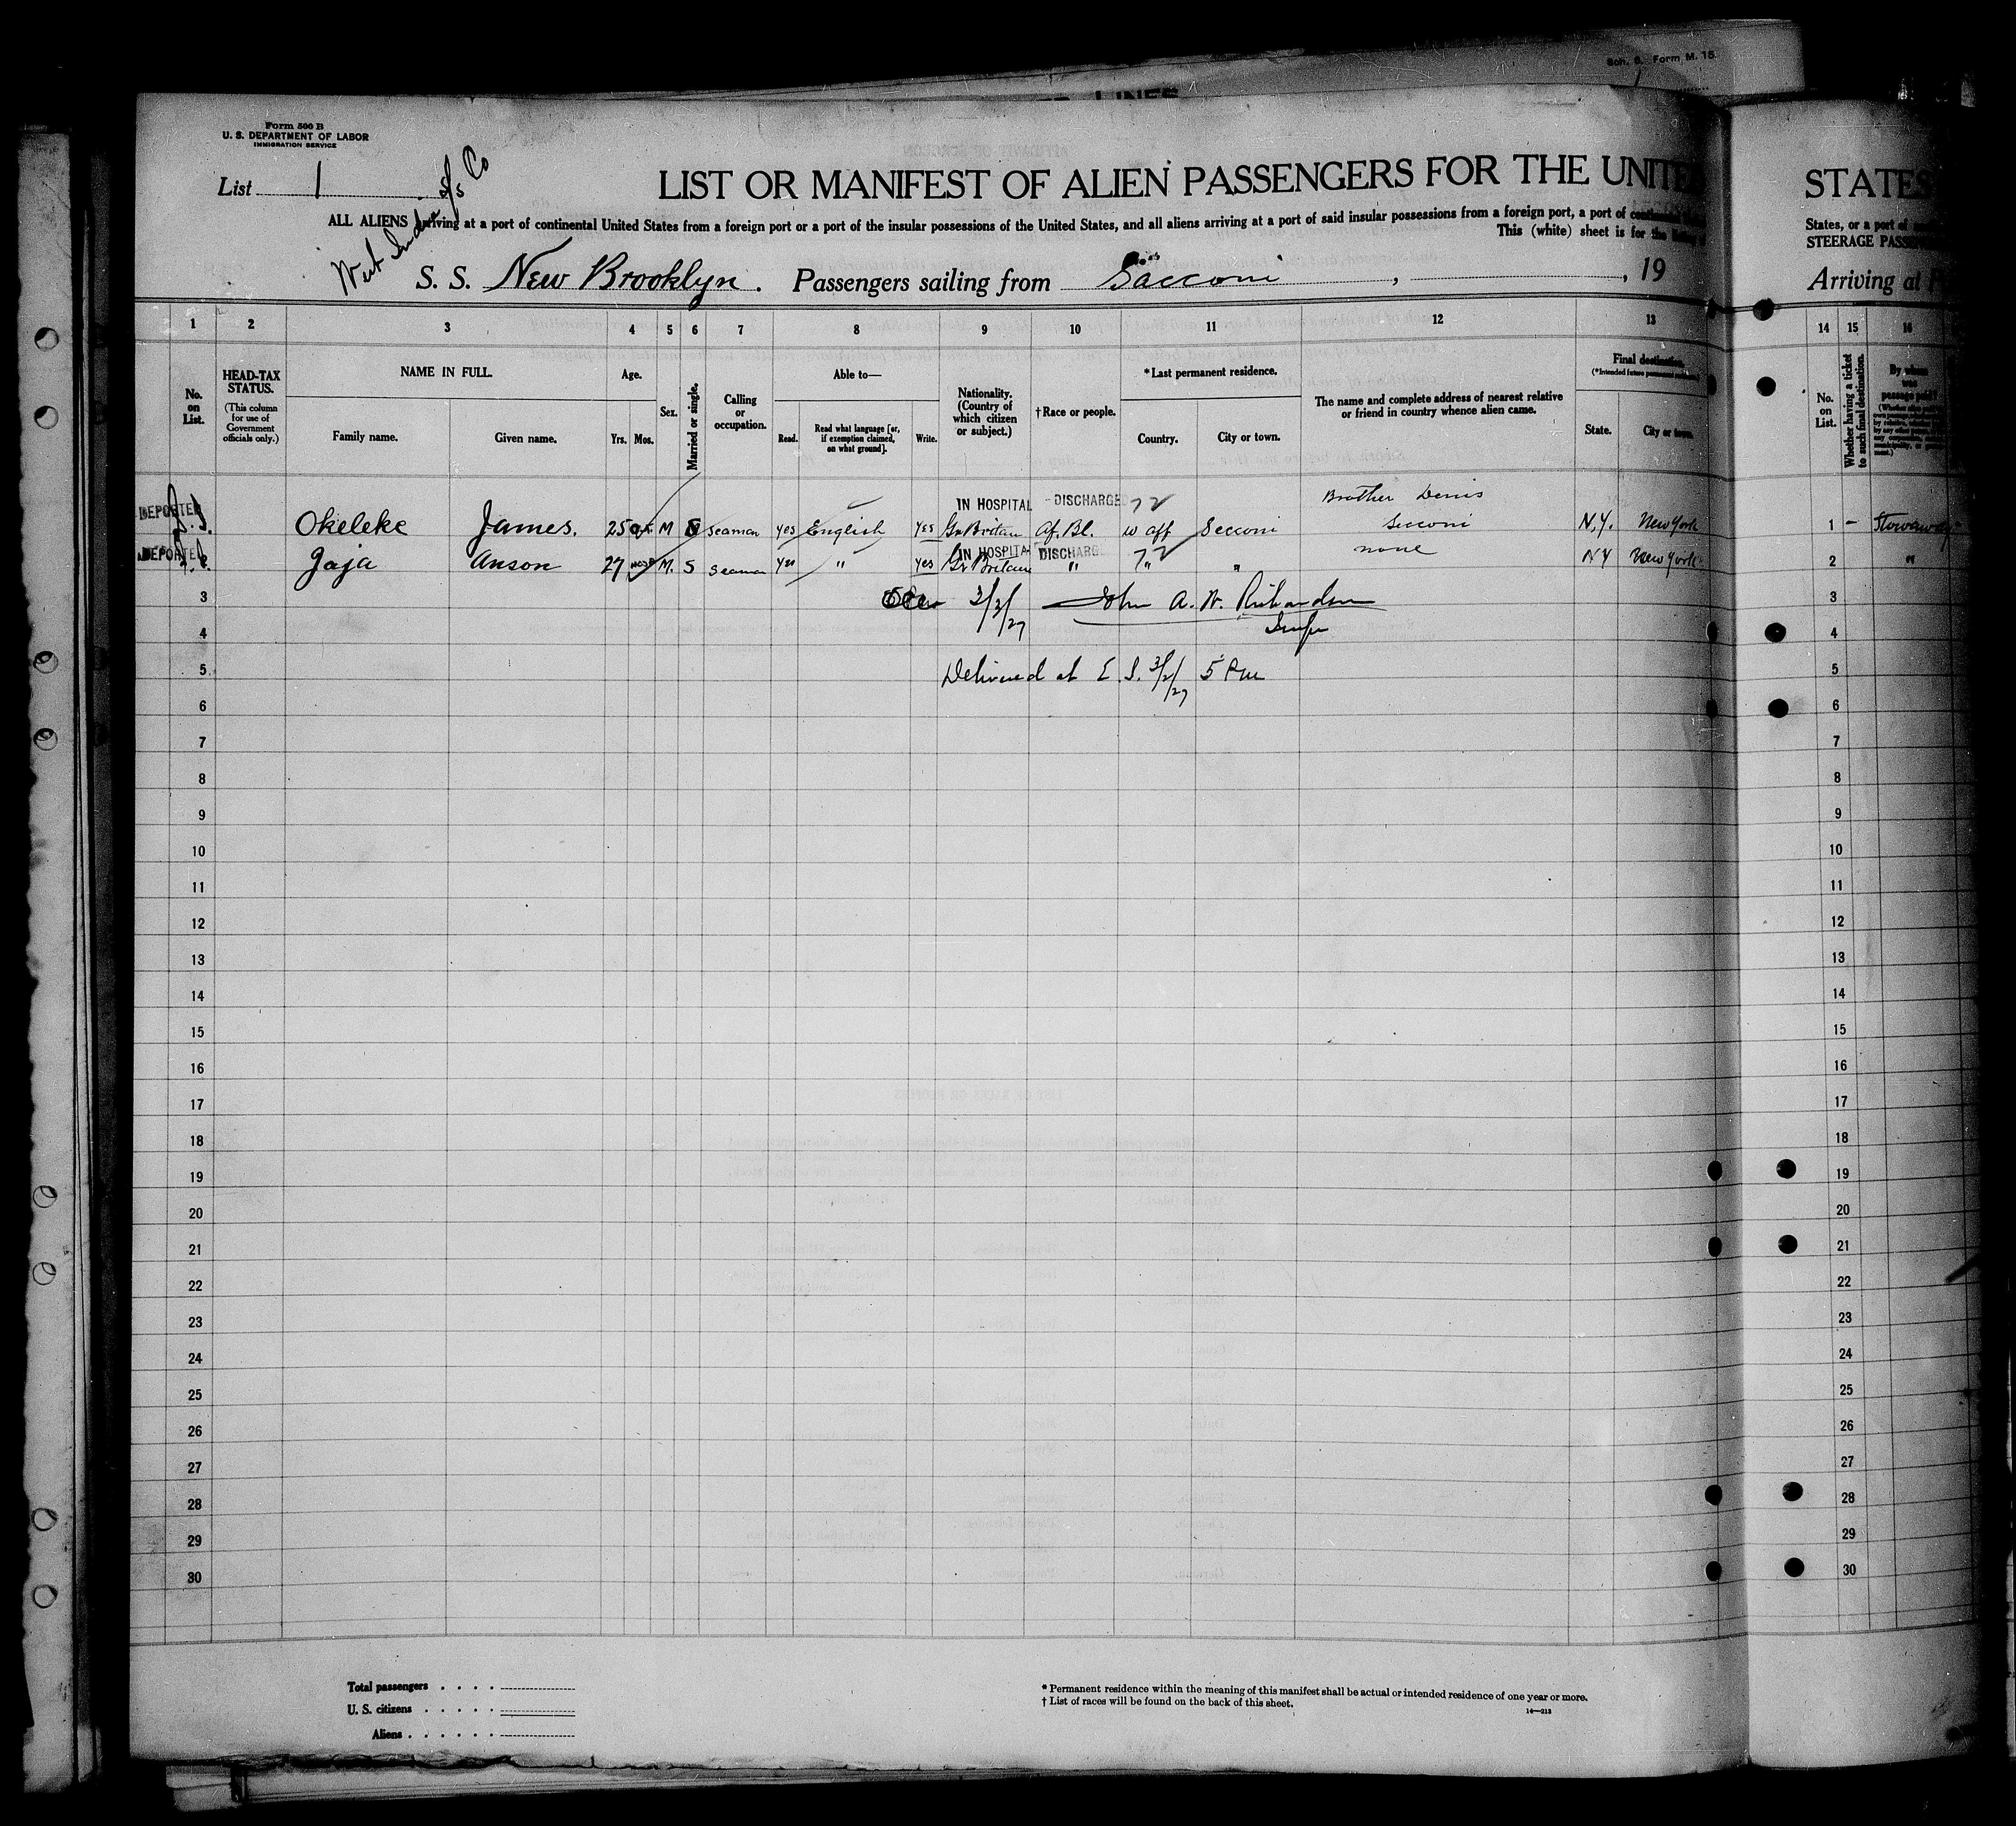 Sch. 6. Form M. 15
LINES
Form 500 B
U. S. DEPARTMENT OF LABOR
IMMIGRATION SERVICE
List 1
S/S Co
LIST OR MANIFEST OF ALIEN PASSENGERS FOR THE UNITED
STATES
ALL ALIENS arriving at a port of continental United States from a foreign port or a port of the insular possessions of the United States, and all aliens arriving at a port of said insular possessions from a foreign port, a port of continental
States, or a port of
This (white) sheet is for the
STEERAGE
S. S. New Brooklyn. Passengers sailing from Sacconi, , 19
Arriving at
1 2 3 4 5 6 7 8 9 10 11 12 13 14 15 16
No. on List.
HEAD-TAX STATUS.
(This column for use of Government officials only.)
NAME IN FULL.
Family name. Given name.
Age.
Yrs. Mos.
Sex.
Married or single.
Calling or occupation.
Able to—
Read. Read what language [or, if exemption claimed, on what ground]. Write.
Nationality. (Country of which citizen or subject.)
†Race or people.
*Last permanent residence.
Country. City or town.
The name and complete address of nearest relative or friend in country whence alien came.
Final destination.
(*Intended future permanent residence.)
State. City or town.
No. on List.
Whether having a ticket to such final destination.
By whom was passage paid?
IN HOSPITAL DISCHARGED 72 Brother Denis
DEPORTED Okeleke James. 25 M S seaman yes English yes Gr Britain Af. Bl. W aff Secconi Secconi N.Y. New York 1 – Stowaway
IN HOSPITAL DISCHARG 72
DEPORTED Jaja Anson 27 M. S seaman yes " yes Gr Britain " " " none NY New York 2 "
3 3/2/27 John A. W. Richardson 3
4 4
5 Delivered at E. I. 3/2/27 5 Pm 5
6 6
7 7
8 8
9 9
10 10
11 11
12 12
13 13
14 14
15 15
16 16
17 17
18 18
19 19
20 20
21 21
22 22
23 23
24 24
25 25
26 26
27 27
28 28
29 29
30 30
Total passengers . . . .
U. S. citizens . . . . .
Aliens . . . . . .
* Permanent residence within the meaning of this manifest shall be actual or intended residence of one year or more.
† List of races will be found on the back of this sheet.
14—213